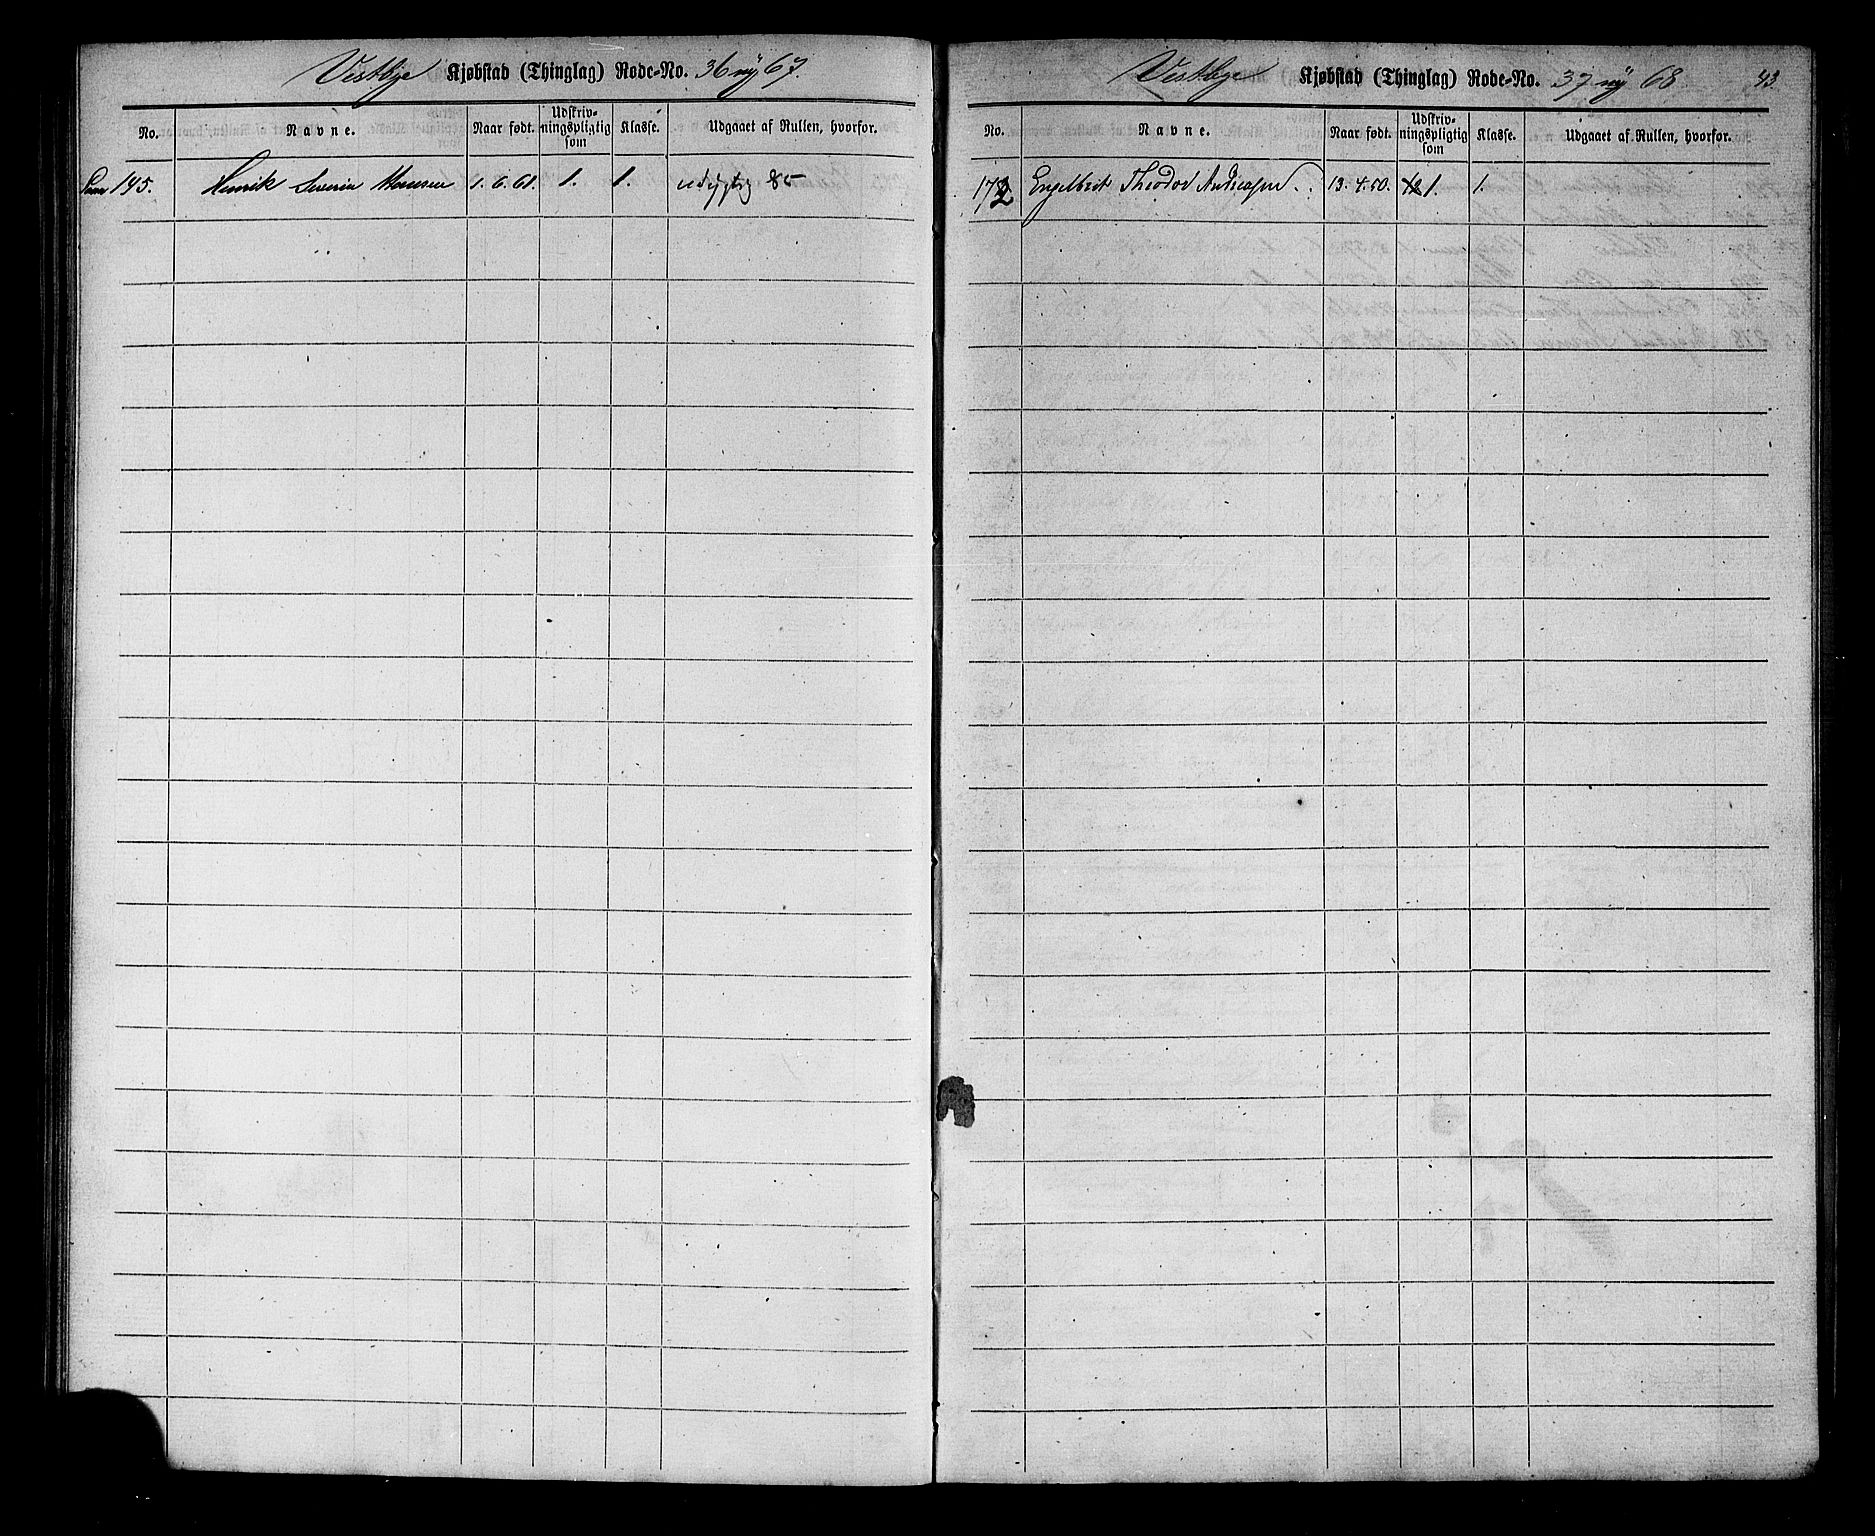 Vestbye Kjøbstad (Thinglag) Rode-No. 36 ny 67.
No. Navne. Naar født. Udskriv-ningspligtig som Klasse. Udgaaet af Rullen, hvorfor.
195. Henrik Severin 1.6.61. 1. 1. 85
Vestbye Kjøbstad (Thinglag) Rode-No. 37 ny 68 43.
No. Navne. Naar født. Udskriv-ningspligtig som Klasse. Udgaaet af Rullen, hvorfor.
172 Engelbret Theodor Andreasen. 13.4.50. 1. 1.